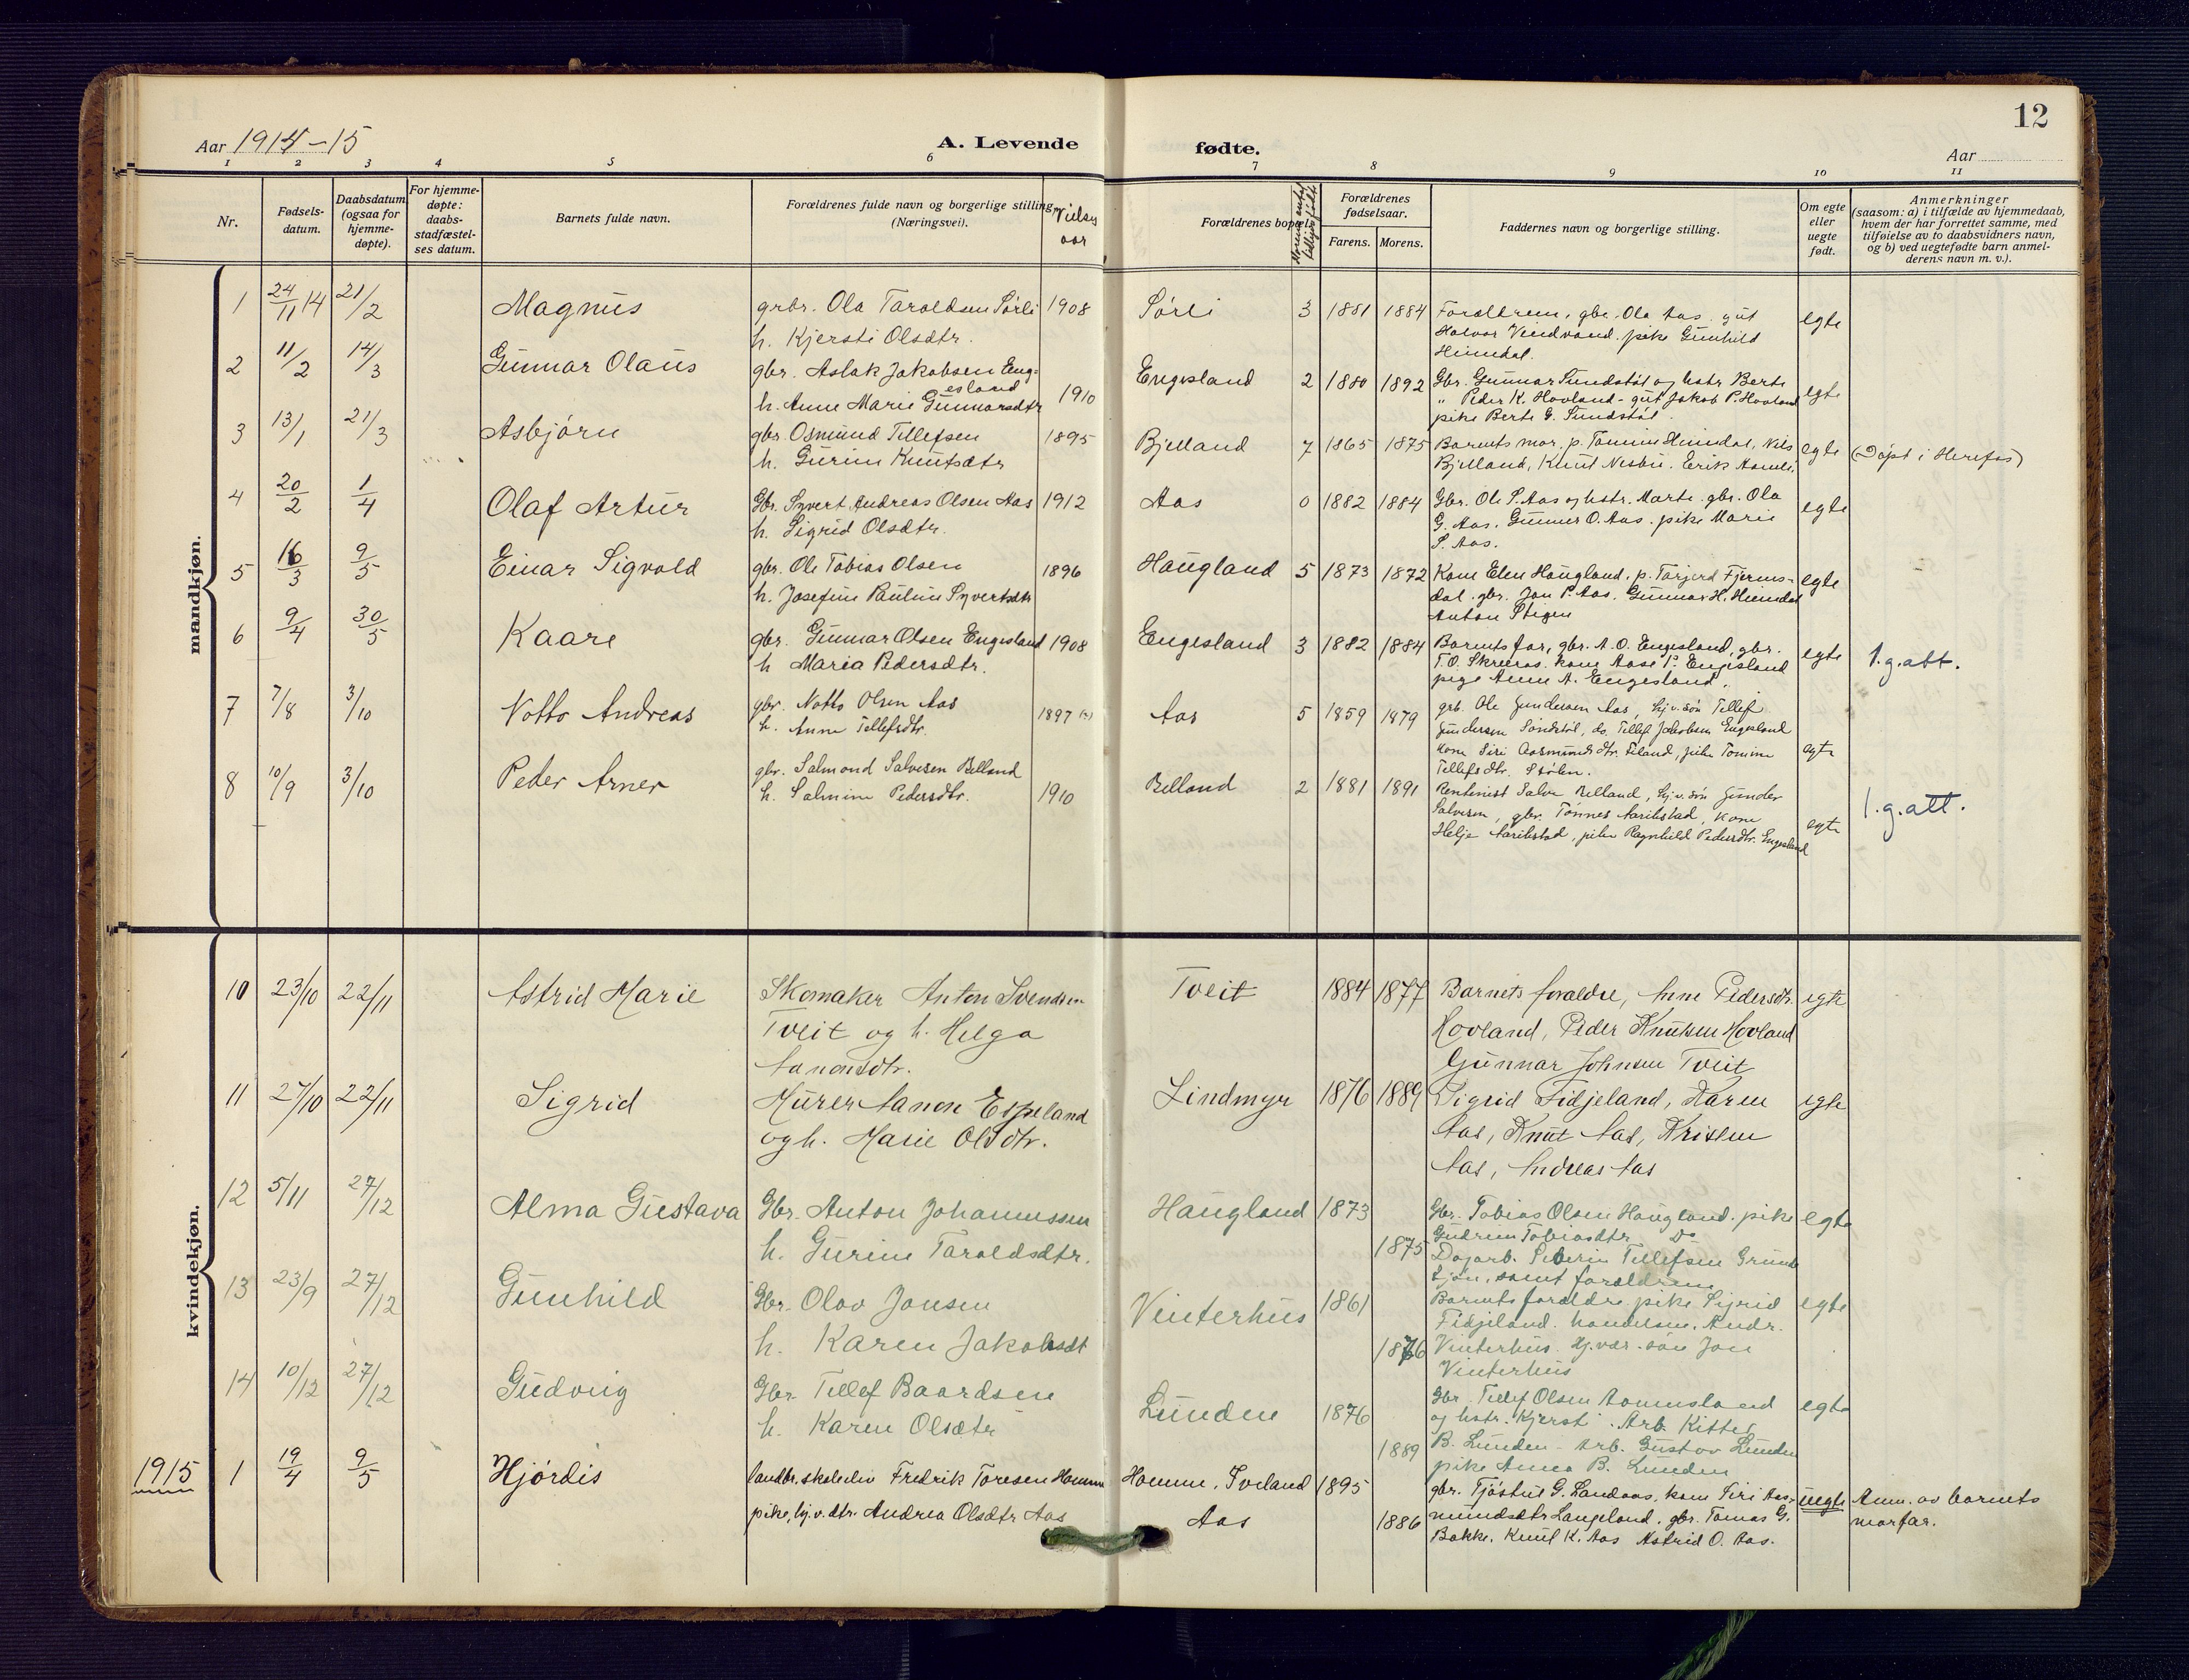 12
Aar 1914-15
A. Levende fødte.
Aar
1 2 3 4 5 6 7 8 9 10 11
Nr.
Fødsels-
datum.
Daabsdatum
(ogsaa for
hjemme-
døpte).
For hjemme-
døpte:
daabs-
stadfæstel-
ses datum.
Barnets fulde navn.
Forældrenes fulde navn og borgerlige stilling
(Næringsvei).
Vielses
aar
Forældrenes bopæl.
Forældrenes
fødselsaar.
Farens. Morens.
Faddernes navn og borgerlige stilling.
Om egte
eller
uegte
født.
Anmerkninger
(saasom: a) i tilfælde av hjemmedaab,
hvem der har forrettet samme, med
tilføielse av to daabsvidners navn,
og b) ved uegtefødte barn anmel-
derens navn m. v.).
mandkjøn.
1 24/11 14 21/2 Magnus grbr. Ola Taraldsen Sørli 1908 Sørli 3 1881 1884 Forældrene, gbr. Ola Aas. gut egte
h. Kjersti Olsdtr. Halvor Vindvand. pike Gunhild
Heimdal.
2 11/2 14/3 Gunnar Olaus gbr. Aslak Jakobsen Eng- Engesland 2 1880 1892 Gbr. Gunnar Sundstøl og hstr Berte egte
esland 1910 " Peder K. Hovland - gut Jakob P. Hovland
h. Anne Marie Gunnarsdtr pike Berte G. Sundstøl.
3 13/1 21/3 Asbjørn gbr. Osmund Tellefsen 1895 Bjelland 7 1865 1875 Barnets mor, p. Tomine Heimdal, Nils egte (Døpt i Herefos)
h. Gurine Knutsdtr Bjelland, Knut Nesbu. Erik Aamli
4 20/2 1/4 Olaf Artur Gbr. Syvert Andreas Olsen Aas 1912 Aas 0 1882 1884 Gbr. Ole S. Aas og hstr. Marte. gbr. Ola egte
h. Sigrid Olsdtr. G. Aas. Gunner O. Aas. pike Marie
S. Aas.
5 16/3 9/5 Einar Sigvald gbr. Ole Tobias Olsen 1896 Haugland 5 1873 1872 Kone Elen Haugland, p. Torjerd Fjerms- egte
h. Josefine Pauline Syvertsdtr dal. gbr. Jon P. Aas. Gunnar H. Heimdal
Anton Stigen
6 9/4 30/5 Kaare gbr. Gunnar Olsen Engesland 1908 Engesland 3 1882 1884 Barnets far, gbr. A. O. Engesland, gbr. egte 1.g.att.
h Maria Pedersdtr. T. O. Skreros. kone Aase P. Engesland
pige Anne A. Engesland.
7 7/8 3/10 Notto Andreas gbr. Notto Olsen Aas 1897 Aas 5 1859 1879 grb. Ole Gundersen Aas, hj.v. søn Tellef
h. Anne Tellefsdtr. Gundersen Sundstøl, do. Tellef Jakobsen Engesland
kone Siri Aasmundsdtr. Eiland, pike Tomine egte
Tellefsdtr. Stølen.
8 10/9 3/10 Peder Arner gbr. Salmond Salvesen Belland Belland 2 1881 1891 Rentenist Salve Belland, hj.v. søn Gunder 1.g.att.
h. Salmine Pedersdtr. 1910 Salvesen, gbr. Tønnes Aarikstad, kone egte
Helje Aarikstad, pike Ragnhild Pedersdtr. Engesland
kvindekjøn.
10 23/10 22/11 Astrid Marie Skomaker Anton Svendsen Tveit 1884 1877 Barnets forældre, Anne Pedersdtr. egte
Tveit og h. Helga Hovland, Peder Knutsen Hovland
Aanonsdtr. Gunnar Johnsen Tveit
11 27/10 22/11 Sigrid Murer Aanon Espeland Lindmyr 1876 1889 Sigrid Fidjeland, Karen egte
og h. Marie Olsdtr. Aas, Knut Aas, Kristen
Aas, Andreas Aas
12 5/11 27/12 Alma Gustava Gbr. Anton Johannessen Haugland 1873 Gbr. Tobias Olsen Haugland. pike egte
Gudrun Tobiasdtr Do
h. Gurine Taraldsdtr. 1875 Dagarb. Severin Tellefsen Grund-
tjøn, samt forældrene
13 23/9 27/12 Gunhild Gbr. Olav Jonsen Vinterhus 1861 Barnets forældre. pike Sigrid egte
Fidjeland. handelsm. Andr.
h. Karen Jakobsdt 1876 Vinterhus. Hj.vær. søn Jon
Vinterhus
14 10/12 27/12 Gudvig Gbr Tellef Baardsen Lunden 1876 Gbr. Tellef Olsen Aamesland egte
h. Karen Olsdtr og hstr. Kjersti. Arb. Kittel
1889 B. Lunden - Arb. Gustav Lunden
pike Anna B. Lunden
1915 1 19/4 9/5 Hjørdis landbr.skoleelev Fredrik Toresen Homme Homme, Iveland 1895 gbr. Tjøstul G. Landaas, kone Siri Aas- uegte Anm. av barnets
pike, hj.v. dtr. Andrea Olsdtr Aas Aas 1886 mundsdtr Langeland, gbr. Tomas G. morfar.
Bakke. Knut K. Aas Astrid O. Aas.